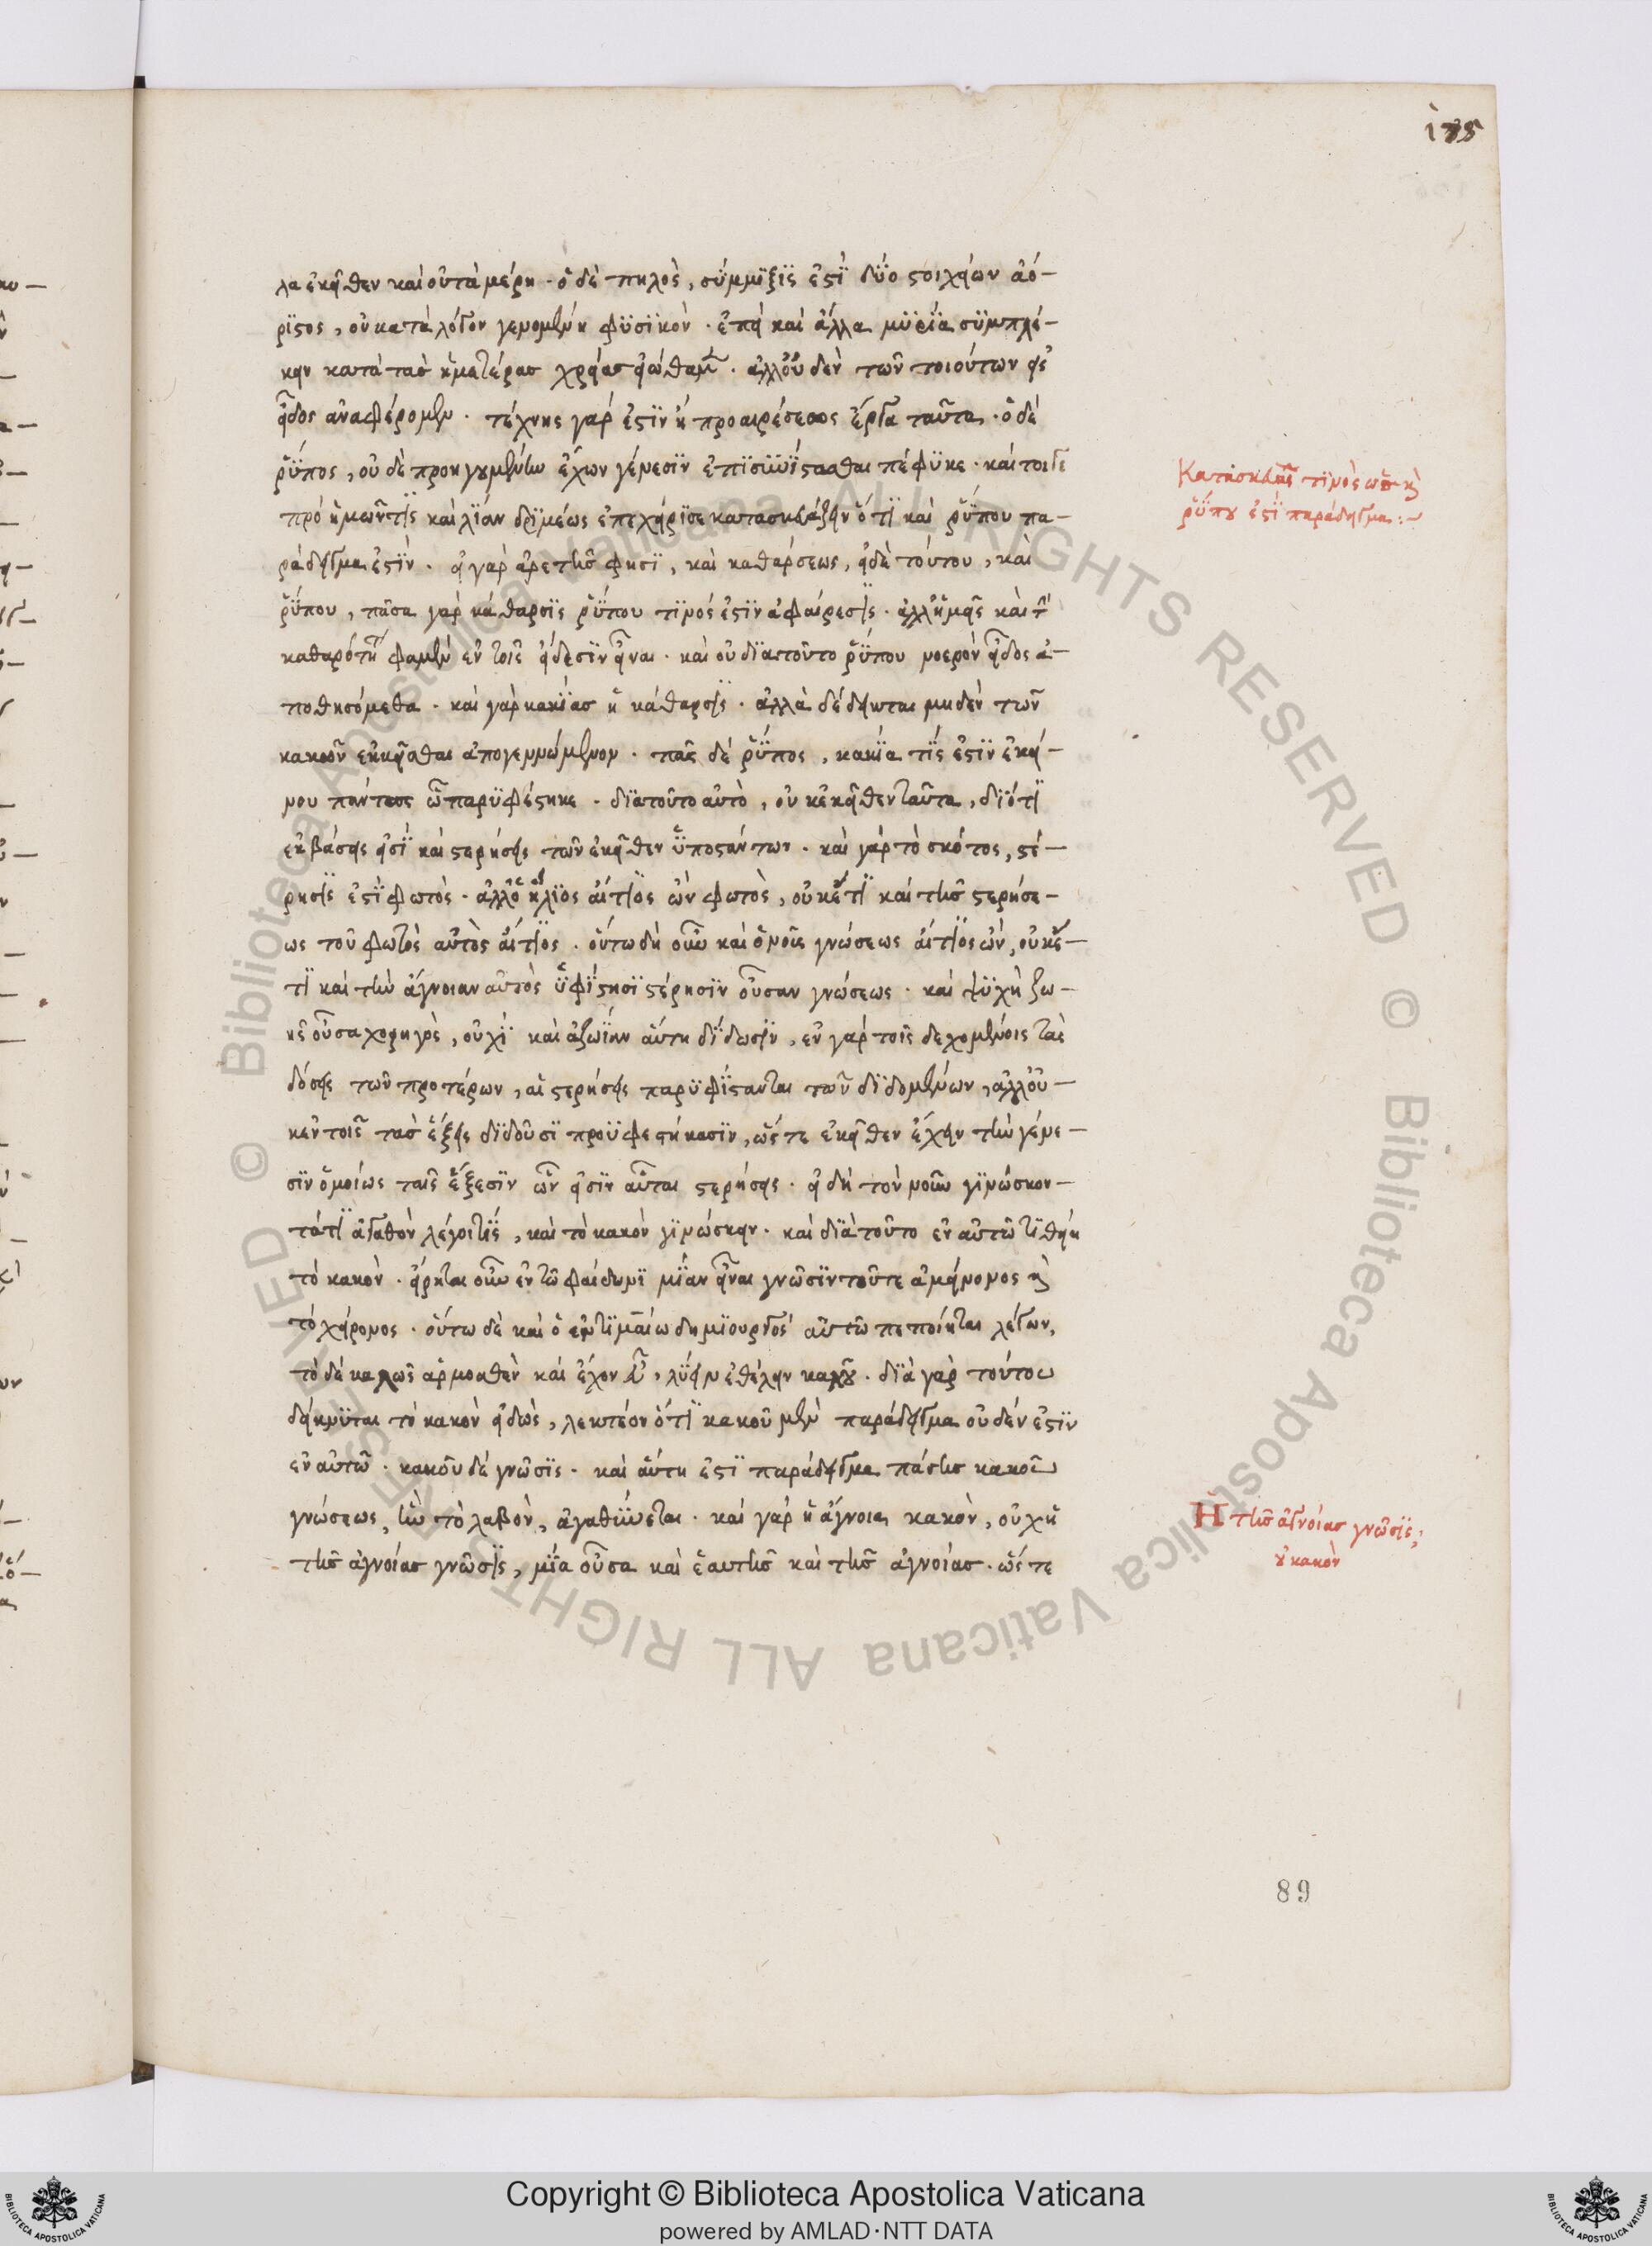 ιϡϛ
λα ἐκεῖθεν καὶ οὐ τὰ μέρη · ὁ δὲ πηλὸς, σύμμιξις ἐστὶ δύο στοιχείων ἀό–
ριστος, οὐ κατὰ λόγον γενομένη φυσικὸν · ἐπεὶ καὶ ἄλλα μυρία συμπλέ–
κειν κατὰ τὰς ἡμετέρας χρείας εἰώθαμεν · ἀλλ' οὐδὲν τῶν τοιούτων εἰς
εἶδος ἀναφέρομεν · τέχνης γάρ ἐστιν ἢ προαιρέσεως ἔργα ταῦτα · ὁ δὲ
ῥύπος, οὐδὲ προηγουμένην ἔχων γένεσιν ἐπισυνίστασθαι πέφυκε · καίτοιγε
πρὸ ἡμῶν τὶς καὶ λίαν δριμέως ἐπεχείρισε κατασκευάζειν ὅτι καὶ ῥύπου πα–
ράδειγμα ἐστὶν · εἰ γὰρ ἀρετῆς φησὶ, καὶ καθάρσεως, εἰ δὲ τούτου, καὶ
ῥύπου, πᾶσα γὰρ κάθαρσις ῥύπου τινός ἐστιν ἀφαίρεσις · ἀλλ' ἡμεῖς καὶ τὴν
καθαρότητα φαμὲν ἐν τοῖς εἴδεσιν εἶναι · καὶ οὐ διατοῦτο ῥύπου νοερὸν εἶδος ἀ–
ποθησόμεθα · καὶ γὰρ κακίας ἡ κάθαρσις · ἀλλὰ δέδεικται μηδὲν τῶν
κακῶν ἐκεῖσθαι ἀπογεννώμενον · πᾶς δὲ ῥύπος, κακία τίς ἐστιν ἐκεί–
νου πάντως ᾧ παρυφέστηκε · διατοῦτο αὐτὸ, οὐκ ἐκεῖθεν ταῦτα, διότι
ἐκβάσεις εἰσὶ καὶ στερήσεις τῶν ἐκεῖθεν ὑποστάντων · καὶ γὰρ τὸ σκότος, στέ–
ρησις ἐστὶ φωτὸς · ἀλλ' ὁ ἥλιος αἴτιος ὢν φωτὸς, οὐκέτι καὶ τῆς στερήσε–
ως τοῦ φωτὸς αὐτὸς αἴτιος · οὕτω δὴ οὖν καὶ ὁ νοῦς γνώσεως αἴτιος ὢν, οὐκέ–
τι καὶ τὴν ἄγνοιαν αὐτὸς ὑφίστησι στέρησιν οὖσαν γνώσεως · καὶ ψυχὴ ζω–
ῆς οὖσα χορηγὸς, οὐχὶ καὶ ἀζωίαν αὕτη δίδωσιν, ἐν γὰρ τοῖς δεχομένοις τὰς
δόσεις τῶν προτέρων, αἱ στερήσεις παρυφίστανται τῶν διδομένων, ἀλλ' οὐ–
κ ἐν τοῖς τὰς ἕξεις διδοῦσι προϋφεστήκασιν, ὥστε ἐκεῖθεν ἔχειν τὴν γένε–
σιν ὁμοίως ταῖς ἕξεσιν ὧν εἰσὶν αὗται στερήσεις · εἰ δὴ τὸν νοῦν γινώσκον–
τά τι ἀγαθὸν λέγοι τὶς, καὶ τὸ κακὸν γινώσκειν · καὶ διὰ τοῦτο ἐν αὐτῶ τιθείη
τὸ κακὸν · εἴρηται οὖν ἐν τῶ φαίδωνι μίαν εἶναι γνῶσιν τοῦ τε ἀμείνονος καὶ
τὸ χείρονος · οὕτω δὲ καὶ ὁ ἐν τιμαίω δημιουργὸς αὐτῶ πεποίηται λέγων,
τὸ δὲ καλῶς ἁρμοσθὲν καὶ ἔχον εὖ, λύειν ἐθέλειν κακοῦ · διὰ γὰρ τούτου
δείκνυται τὸ κακὸν εἰδὼς, λεκτέον ὅτι κακοῦ μὲν παράδειγμα οὐδέν ἐστιν
ἐν αὐτῶ · κακοῦ δὲ γνῶσις · καὶ αὕτη ἐστὶ παράδειγμα πάσης κακοῦ
γνώσεως, ἣν τὸ λαβὸν, ἀγαθύνεται · καὶ γὰρ ἡ ἄγνοια κακὸν, οὐχ ἡ
τῆς ἀγνοίας γνῶσις, μία οὖσα καὶ ἑαυτῆς καὶ τῆς ἀγνοίας · ὥστε
Κατασκευῆς τινὸς ὡς καὶ
ῥύπου ἐστὶ παράδειγμα :~
Ἡ τῆς ἀγνοίας γνῶσις,
οὐ κακὸν
89
© Biblioteca Apostolica Vaticana ALL RIGHTS RESERVED
Copyright © Biblioteca Apostolica Vaticana
powered by AMLAD·NTT DATA